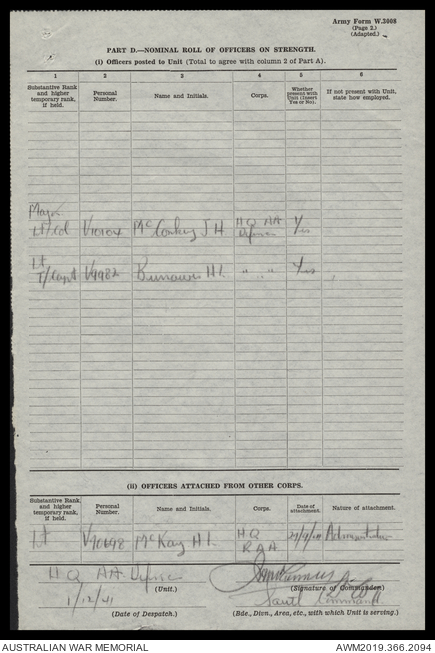 Army Form W.3008
(Page 2.)
(Adapted.)
PART D.—NOMINAL ROLL OF OFFICERS ON STRENGTH.
(i) Officers posted to Unit (Total to agree with column 2 of Part A).
1 2 3 4 5 6
Substantive Rank and higher temporary rank, if held.
Personal Number.
Name and Initials.
Corps.
Whether present with Unit (Insert Yes or No).
If not present with Unit, state how employed.
Major
Lt/Col V10104 McConkey J H HQ AA Defence Yes
Lt
T/Capt V9982 Burrowes H L " " " Yes
(ii) OFFICERS ATTACHED FROM OTHER CORPS.
Substantive Rank and higher temporary rank, if held.
Personal Number.
Name and Initials.
Corps.
Date of attachment.
Nature of attachment.
Lt McKay H L HQ RAA
HQ AA Defence
(Unit.)
(Signature of Commander.)
1/12/41
Command
(Date of Despatch.)
(Bde., Divn., Area, etc., with which Unit is serving.)
AUSTRALIAN WAR MEMORIAL
AWM2019.366.2094